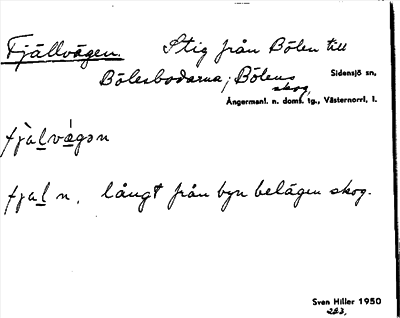 Fjällvägen. Stig från Bölen till
Bölesbodarna; Bölens skog, Sidensjö sn,
Ångermanl. n. doms. tg., Västernorrl. l.
fjalvägən
fjal n. långt från byn belägen skog.
Sven Hiller 1950
283,